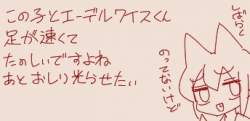 この子とエーデルワイスくん
足が速くて
たのしいですよね
あとおしり光らせたい
しばらく
のってないけど